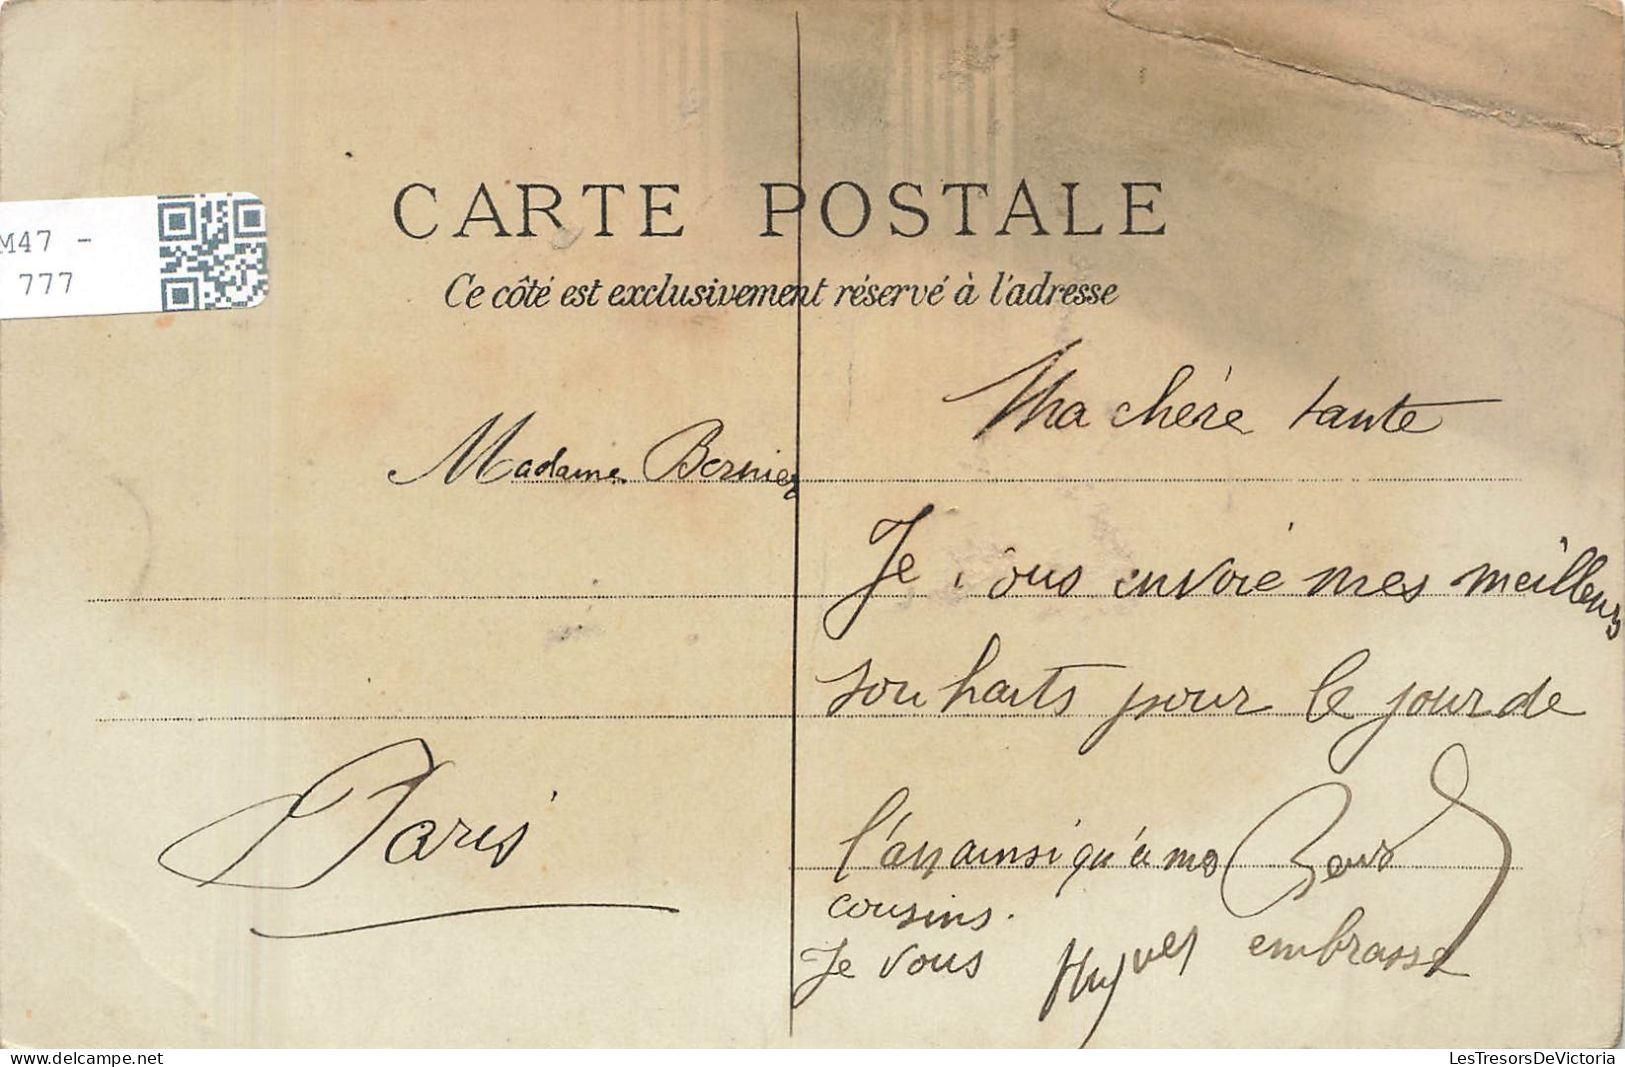 CARTE POSTALE
Ce côté est exclusivement réservé à l'adresse
M47 -
777
Madame Bernier
Paris
Ma chère tante
Je vous envoie mes meilleurs
souhaits pour le jour de
l'an ainsi qu'à mes
cousins.
Je vous embrasse
Hugues
www.delcampe.net
LesTresorsDeVictoria